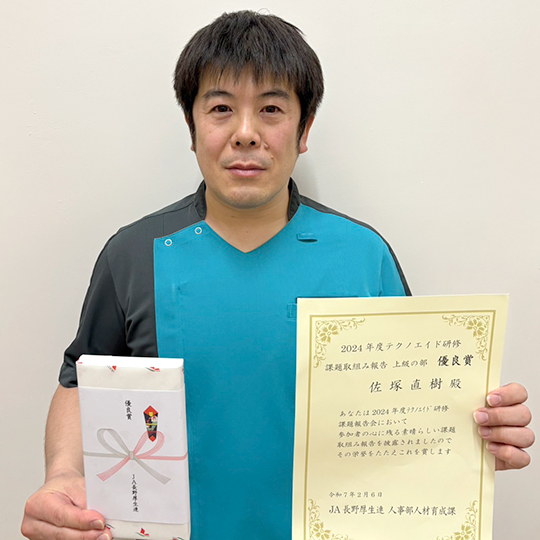 2024年度テクノエイド研修
課題取組み報告 上級の部 優良賞
佐塚直樹 殿
あなたは2024年度テクノエイド研修
課題報告会において
参加者の心に残る素晴らしい課題
取組み報告を披露されましたので
その学誉をたたえこれを賞します
令和7年2月6日
JA長野厚生連 人事部人材育成課
優良賞
JA長野厚生連